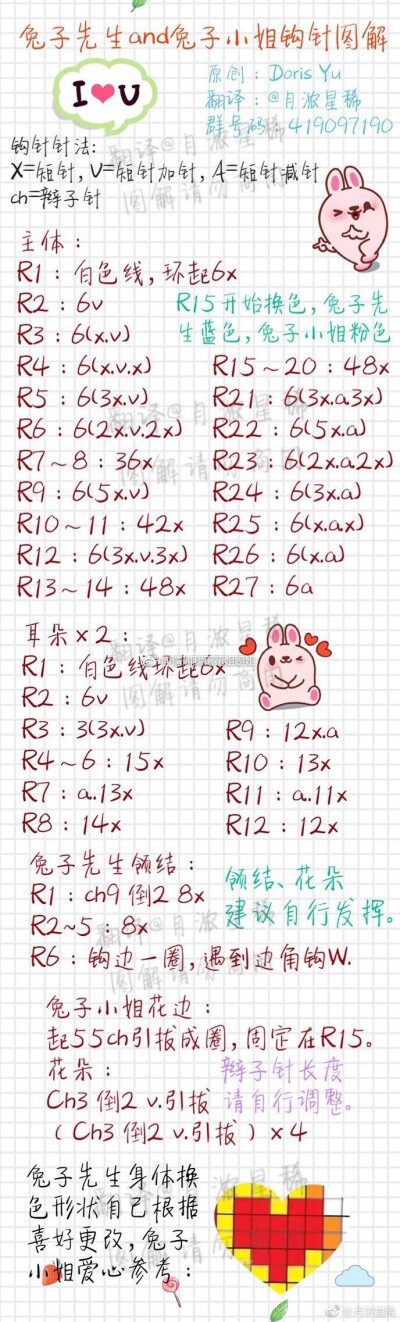 兔子先生and兔子小姐钩针图解
I ❤ U
原创：Doris Yu
翻译：@月浓星稀
群号码：419097190
钩针针法：
X=短针，V=短针加针，A=短针减针
ch=辫子针
主体：
R1：白色线，环起6x
R2：6v
R3：6(x.v)
R4：6(x.v.x)
R5：6(3x.v)
R6：6(2x.v.2x)
R7~8：36x
R9：6(5x.v)
R10~11：42x
R12：6(3x.v.3x)
R13~14：48x
R15开始换色，兔子先
生蓝色，兔子小姐粉色
R15~20：48x
R21：6(3x.a3x)
R22：6(5x.a)
R23：6(2x.a.2x)
R24：6(3x.a)
R25：6(x.ax)
R26：6(x.a)
R27：6a
耳朵x2：
R1：白色线环起6x
R2：6v
R3：3(3x.v)
R4~6：15x
R7：a.13x
R8：14x
R9：12x.a
R10：13x
R11：a.11x
R12：12x
兔子先生领结：
R1：ch9 倒2 8x
R2~5：8x
R6：钩边一圈，遇到边角钩W.
领结、花朵
建议自行发挥。
兔子小姐花边：
起55ch引拔成圈，固定在R15。
花朵：
Ch3 倒2 v.引拔
（Ch3 倒2 v.引拔）x4
辫子针长度
请自行调整。
兔子先生身体换
色形状自己根据
喜好更改，兔子
小姐爱心参考：
翻译@月浓星稀
图解请勿商用
@月浓星稀